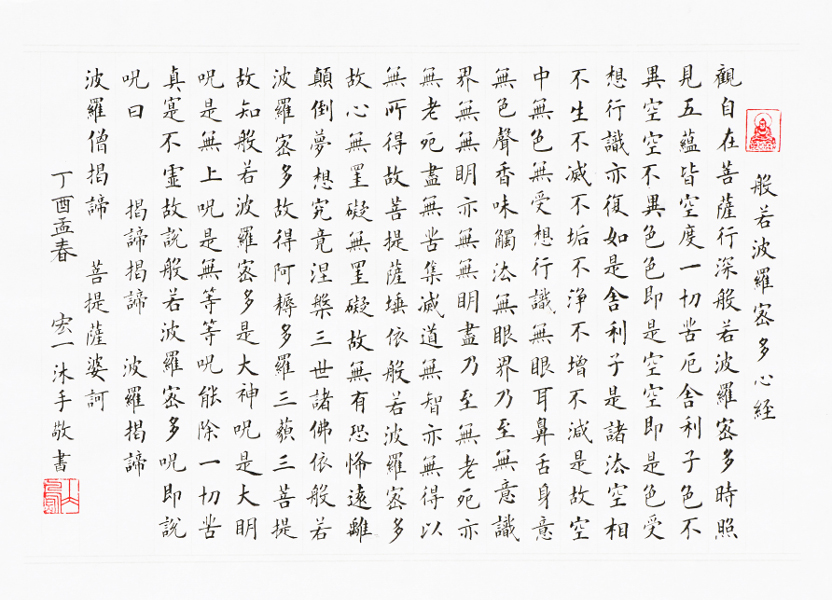 般若波羅密多心経
觀自在菩薩行深般若波羅密多時照
見五蘊皆空度一切苦厄舍利子色不
異空空不異色色即是空空即是色受
想行識亦復如是舍利子是諸法空相
不生不滅不垢不淨不增不減是故空
中無色無受想行識無眼耳鼻舌身意
無色聲香味觸法無眼界乃至無意識
界無無明亦無無明盡乃至無老死亦
無老死盡無苦集滅道無智亦無得以
無所得故菩提薩埵依般若波羅密多
故心無罣礙無罣礙故無有恐怖遠離
顛倒夢想究竟涅槃三世諸佛依般若
波羅密多故得阿耨多羅三藐三菩提
故知般若波羅密多是大神呪是大明
呪是無上呪是無等等呪能除一切苦
真寔不虛故說般若波羅密多呪即說
呪曰 揭諦揭諦 波羅揭諦
波羅僧揭諦 菩提薩婆訶
丁酉孟春 宏一沐手敬書